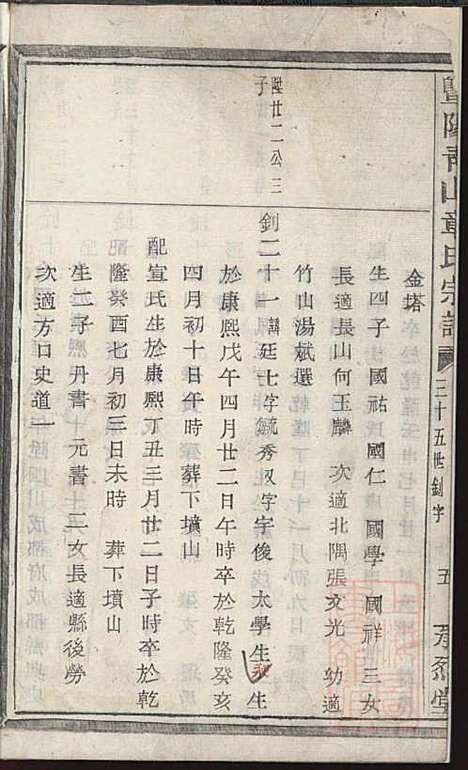 暨陽青山章氏宗譜 三十五世釗字 五
金塔
生四子 國祐 國仁 國學 國祥 三女
長適長山何玉麟 次適北隅張文光 幼適
竹山湯斌選
陞廿二公三子
釗二十一諱廷士字毓秀又字俊 太學生 生
於康熙戊午四月廿二日午時卒於乾隆癸亥
四月初十日午時葬下墳山
配宣氏生於康熙丁丑三月廿二日子時卒於乾
隆癸酉七月初三日未時 葬下墳山
生二子 丹書 元書 二女長適縣後勞
次適方口史道一